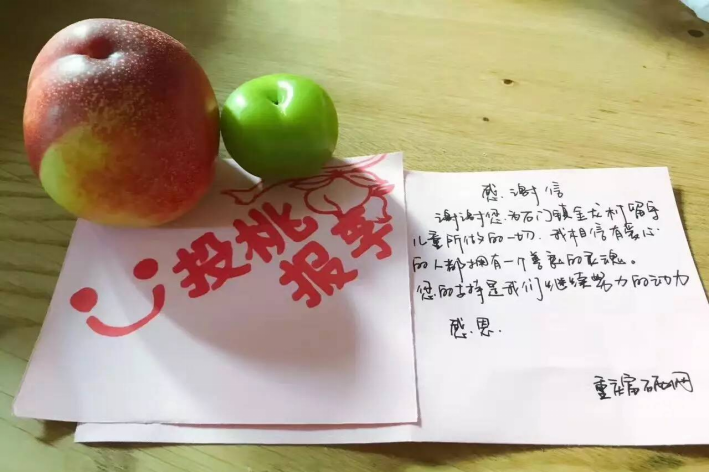 投桃
报李
感谢信
谢谢您为石门镇金龙村留守
儿童所做的一切，我相信有爱心
的人都拥有一个善良的灵魂。
您的支持是我们继续努力的动力
感恩.
重庆 网